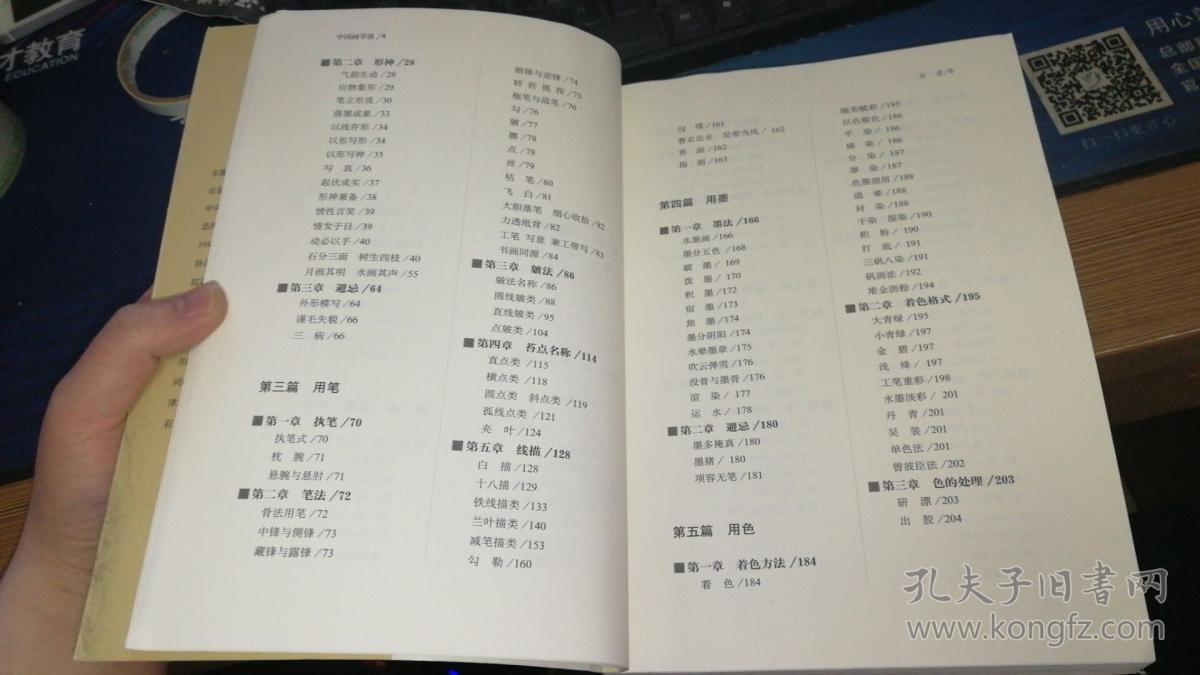 才教育
EDUCATION
中国画学谱/4
■第二章 形神/28
气韵生动/28
应物象形/29
笔立形质/30
落墨成象/33
以线存形/34
以形写形/34
以形写神/35
写 真/36
起伏成实/37
形神兼备/38
情性言笑/39
情发于目/39
动必以手/40
石分三面 树生四枝/40
月画其明 水画其声/55
■第三章 避忌/64
外形模写/64
谨毛失貌/66
三 病/66
第三篇 用笔
■第一章 执笔/70
执笔式/70
枕 腕/71
悬腕与悬肘/71
■第二章 笔法/72
骨法用笔/72
中锋与侧锋/73
藏锋与露锋/73
顺锋与逆锋/74
转 折 提 按/75
拖笔与战笔/76
勾/76
皴/77
擦/78
点/78
丝/79
枯 笔/80
飞 白/81
大胆落笔 细心收拾/82
力透纸背/82
工笔 写意 兼工带写/83
书画同源/84
■第三章 皴法/86
皴法名称/86
圆线皴类/88
直线皴类/95
点皴类/104
■第四章 苔点名称/114
直点类/115
横点类/118
圆点类 斜点类/119
孤线点类/121
夹 叶/124
■第五章 线描/128
白 描/128
十八描/129
铁线描类/133
兰叶描类/140
减笔描类/153
勾 勒/160
勾 填/161
曹衣出水 吴带当风/162
界 画/162
指 画/163
第四篇 用墨
■第一章 墨法/166
水墨画/166
墨分五色/168
破 墨/169
泼 墨/170
积 墨/172
宿 墨/173
焦 墨/174
墨分阴阳/174
水晕墨章/175
吹云弹雪/176
没骨与墨骨/176
渲 染/177
运 水/178
■第二章 避忌/180
墨多掩真/180
墨猪/180
项容无笔/181
第五篇 用色
■第一章 着色方法/184
着 色/184
随类赋彩/185
以色貌色/186
平 染/186
碰 染/186
分 染/187
罩 染/187
色墨混用/188
退 晕/188
衬 染/188
干染 湿染/190
积 粉/190
打 底/191
三矾八染/191
矾画法/192
堆金沥粉/194
■第二章 着色格式/195
大青绿/195
小青绿/197
金 碧/197
浅 绛/197
工笔重彩/198
水墨淡彩/201
丹 青/201
吴 装/201
单色法/201
曾波臣法/202
■第三章 色的处理/203
研 漂/203
出 胶/204
用心
总部
全国
扫一扫更开心
孔夫子旧書网
www.kongfz.com